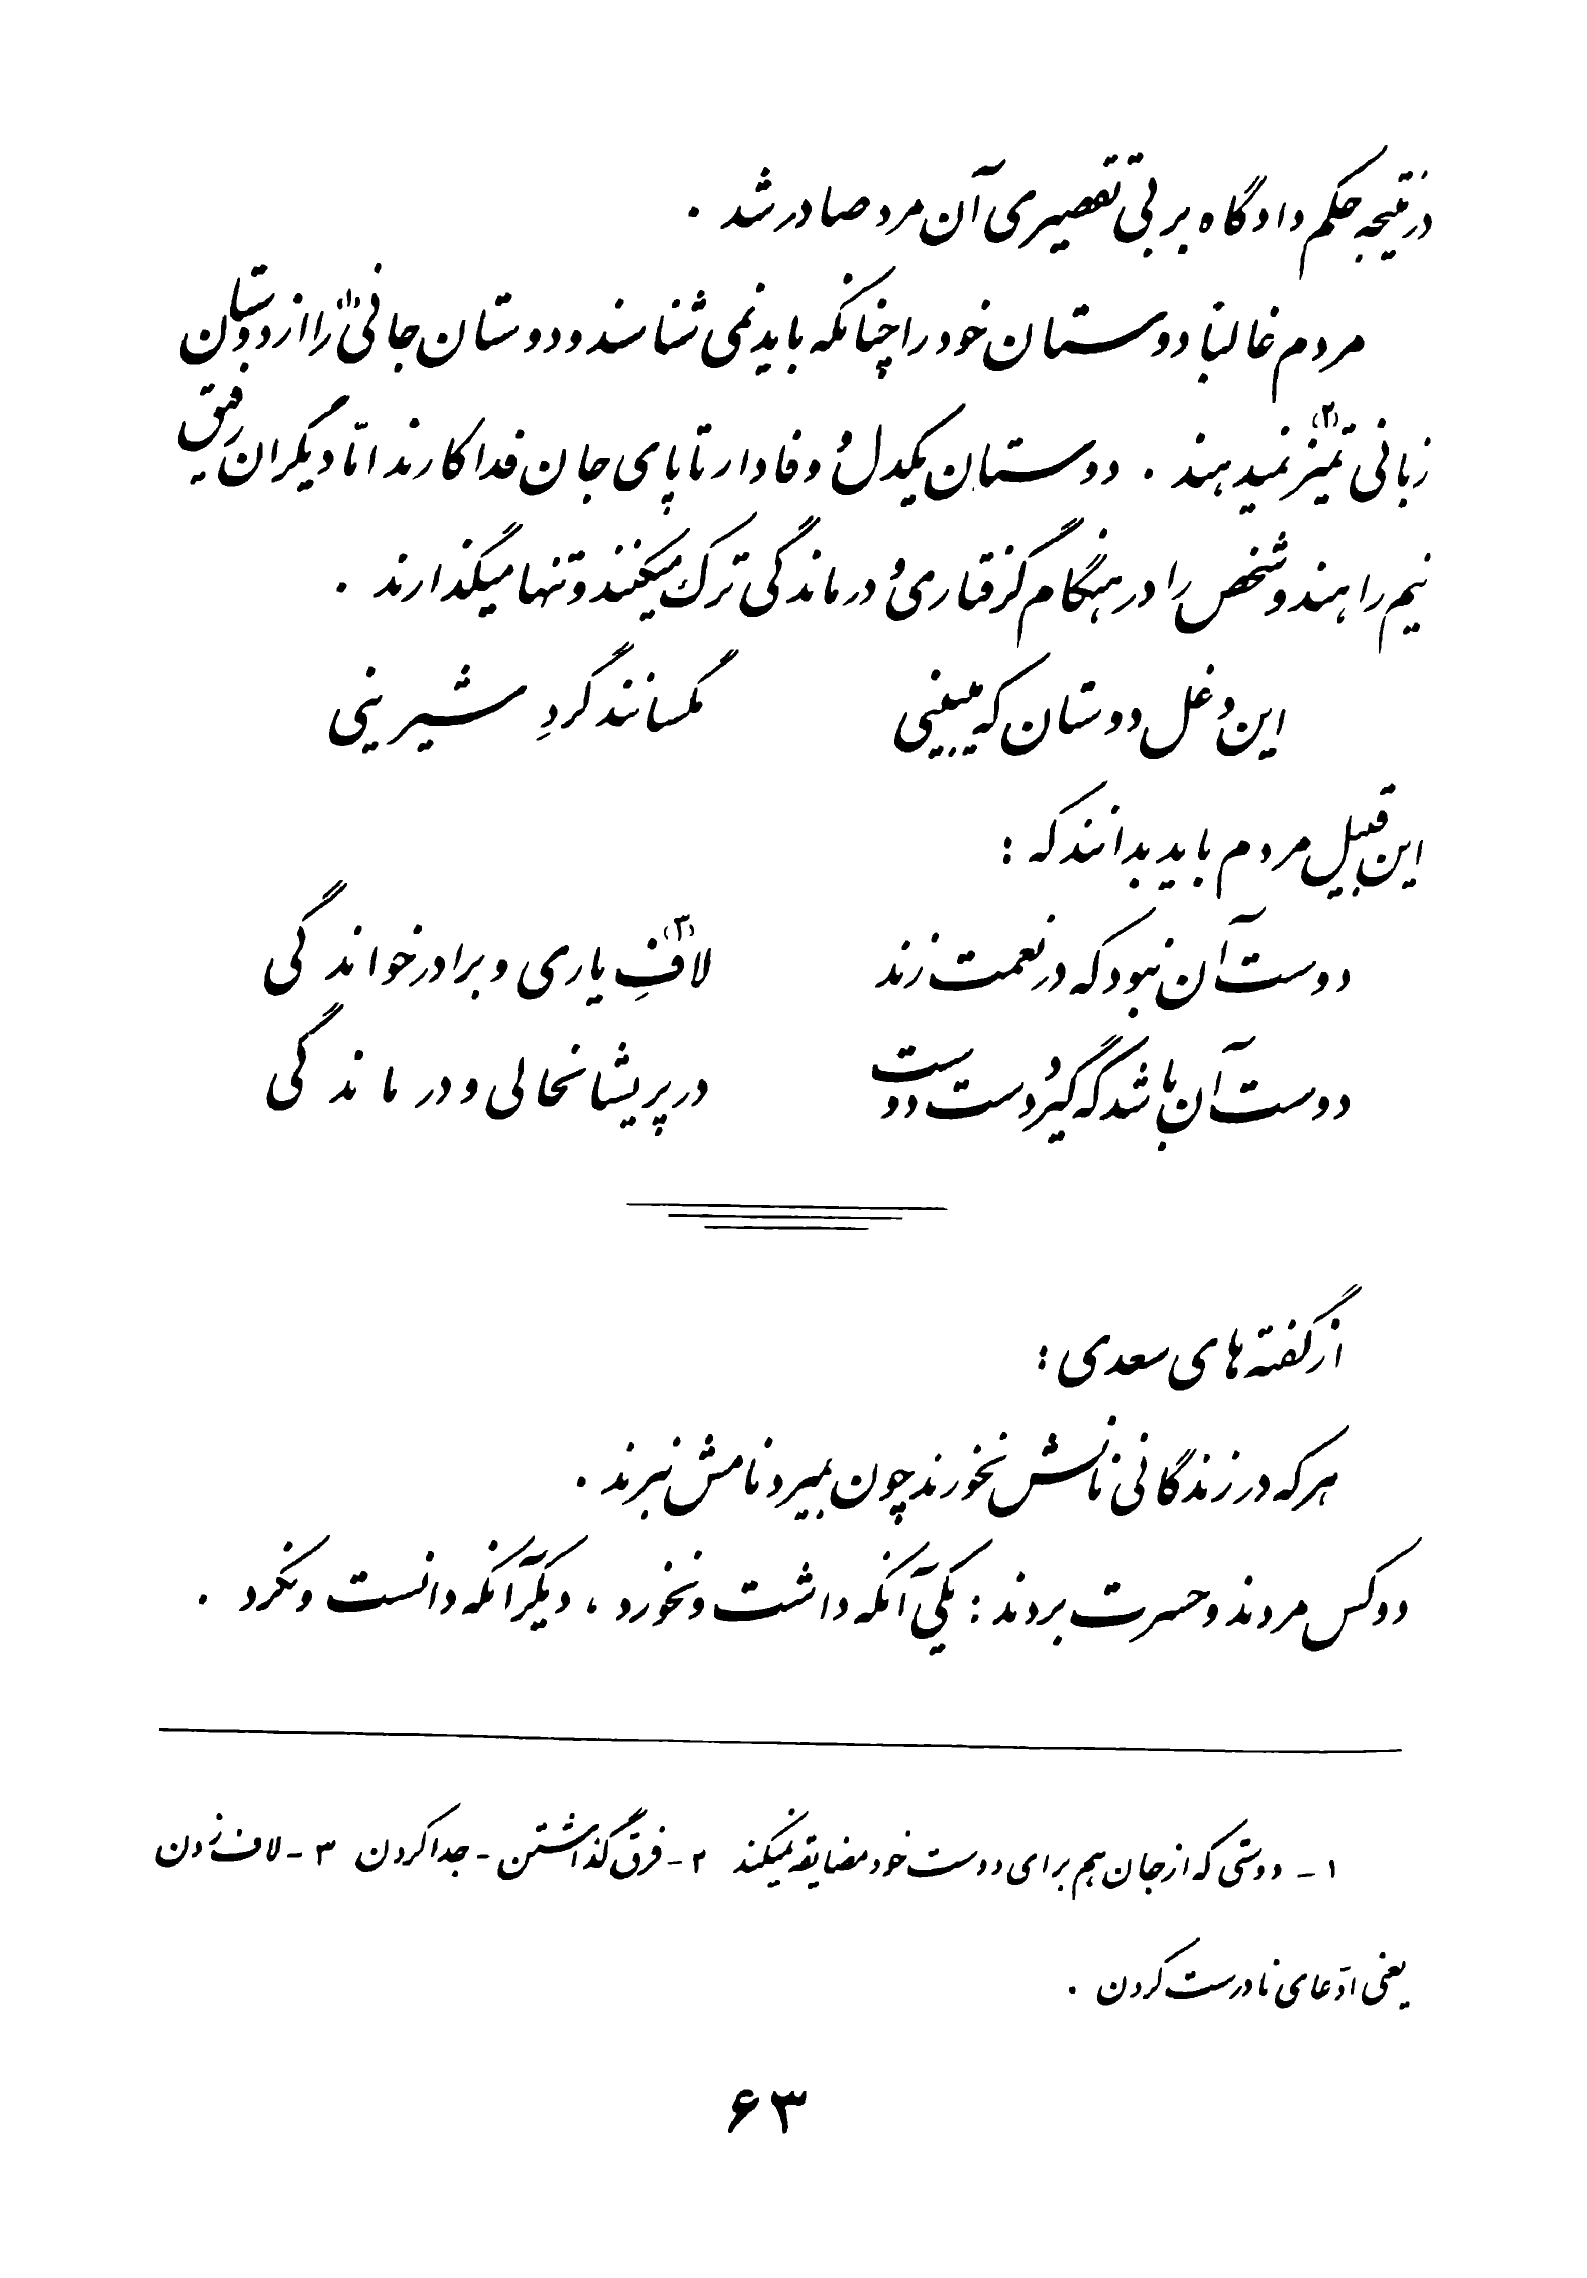 در نتیجه حکم دادگاه بر بی تقصیری آن مرد صادر شد .
مردم غالباً دوستان خود را چنانکه باید نمی شناسند و دوستان جانی (۱) را از دوستان
زبانی تمیز (۲) نمیدهند . دوستان یکدل و وفادار تا پای جان فداکارند امّا دیگران رفیق
نیم راهند و شخص را در هنگام گرفتاری و درماندگی ترک میکنند و تنها میگذارند .
این دغل دوستان که میبینی مگسانند گردِ شیرینی
این قبیل مردم باید بدانند که :
دوست آن نبود که در نعمت زند لافِ (۳) یاری و برادر خواندگی
دوست آن باشد که گیرد دست دوست در پریشانحالی و درماندگی
از گفته های سعدی :
هر که در زندگانی نانش نخورند چون بمیرد نامش نبرند .
دو کس مردند و حسرت بردند : یکی آنکه داشت و نخورد ، دیگر آنکه دانست و نکرد .
۱ - دوستی که از جان هم برای دوست خود مضایقه نمیکند ۲ - فرق گذاشتن - جدا کردن ۳ - لاف زدن
یعنی ادّعای نادرست کردن .
۶۳